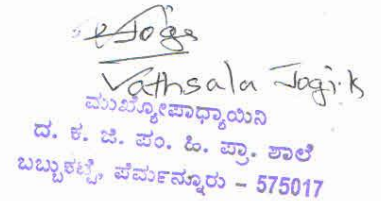 Vathsala Jogi.k
ಮುಖ್ಯೋಪಾಧ್ಯಾಯಿನಿ
ದ. ಕ. ಜಿ. ಪಂ. ಹಿ. ಪ್ರಾ. ಶಾಲೆ
ಬಬ್ಬುಕಟ್ಟೆ, ಪೆರ್ಮನ್ನೂರು - 575017